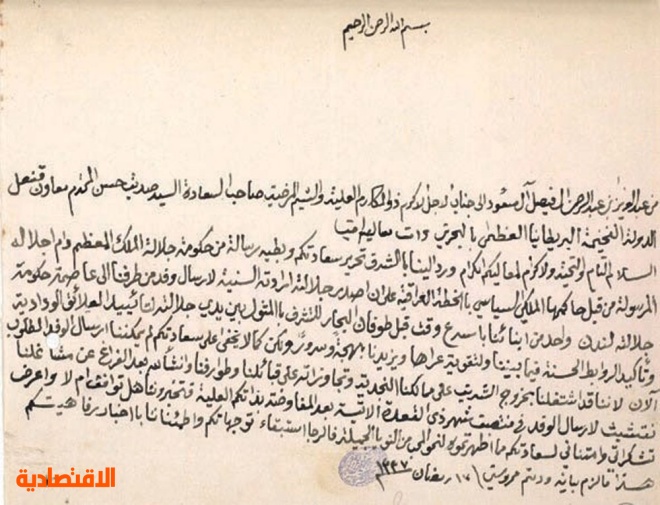 بسم الله الرحمن الرحيم
من عبدالعزيز بن عبدالرحمن الفيصل آل سعود الى جناب الاجل الاكرم ذو المكارم العلية والشيم المرضية صاحب السعادة السيد صديق حسن المحترم معاون قنصل
الدولة الفخيمة البريطانيا العظمى بالبحرين دامت معاليه امين
السلام التام والتحية والاكرام لمعاليكم الكرام ورد الينا بالشرق تحرير سعادتكم وبطيه رسالة من حكومة جلالة الملك المعظم دام اجلاله
المرسولة من قبل حاكمها الملكي السياسي بالخطة العراقية على ان اصدر جلالته ارادته السنية لارسال وفد من طرفنا الى عاصمة حكومة
جلالته لندن واحد من ابنائنا باسرع وقت قبل طوفان البحار للتشرف بالمثول بين يدي جلالته لتأييد العلائق الودادية
وتأكيد الروابط الحسنة فيما بيننا ولتقوية عراها ويزيدنا بهجة وسرور ولكن كما لا يخفى على سعادتكم لم يمكننا ارسال الوفد المطلوب
الآن لاننا قد اشتغلنا بخروج الشريف على ممالكنا النجدية وتجاوزاته على قبائلنا وطوارفنا وانشالله بعد الفراغ عن مشاغلنا
نتشبث لارسال الوفد في منتصف شهر ذي القعدة الاتية بعد المفاوضة بذاتكم العلية فتخبرونا هل توافق ام لا واعرض
تشكراتي وامتناني لسعادتكم مما اظهرتموه لنحو المحب من النوايا الجميلة فالرجا استبقاء توجهاتكم واطمئناننا باخبار رفاهيتكم
هذا ما لزم بيانه ودمتم محروسين ١٧ رمضان ١٣٣٧
الاقتصادية